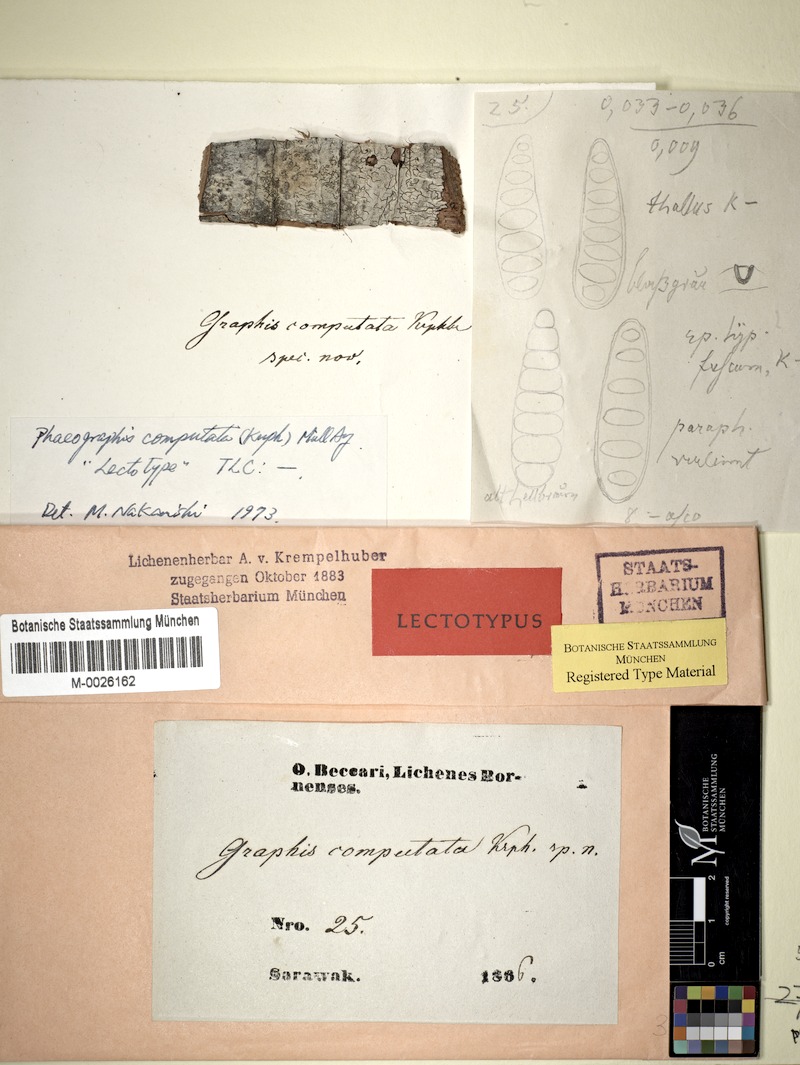 25.
0,033-0,036
0,009
thallus K-
blaßgrün
sp. typ.
fuscum, K-
paraph.
verleimt
alt hellbraun
Graphis computata Krphbr
spec. nov.
Phaeographis computata (Krph) Müll Ag.
"Lectotype" TLC: —.
Det. M. Nakanishi 1973.
Lichenenherbar A. v. Krempelhuber
zugegangen Oktober 1883
Staatsherbarium München
STAATS-
HERBARIUM
MÜNCHEN
LECTOTYPUS
Botanische Staatssammlung München
M-0026162
BOTANISCHE STAATSSAMMLUNG
MÜNCHEN
Registered Type Material
O. Beccari, Lichenes Bor-
nenses.
Graphis computata Krph. sp. n.
Nro. 25.
Sarawak. 1866.
BOTANISCHE
STAATSSAMMLUNG
MÜNCHEN
copyright reserved
0 1 2
cm